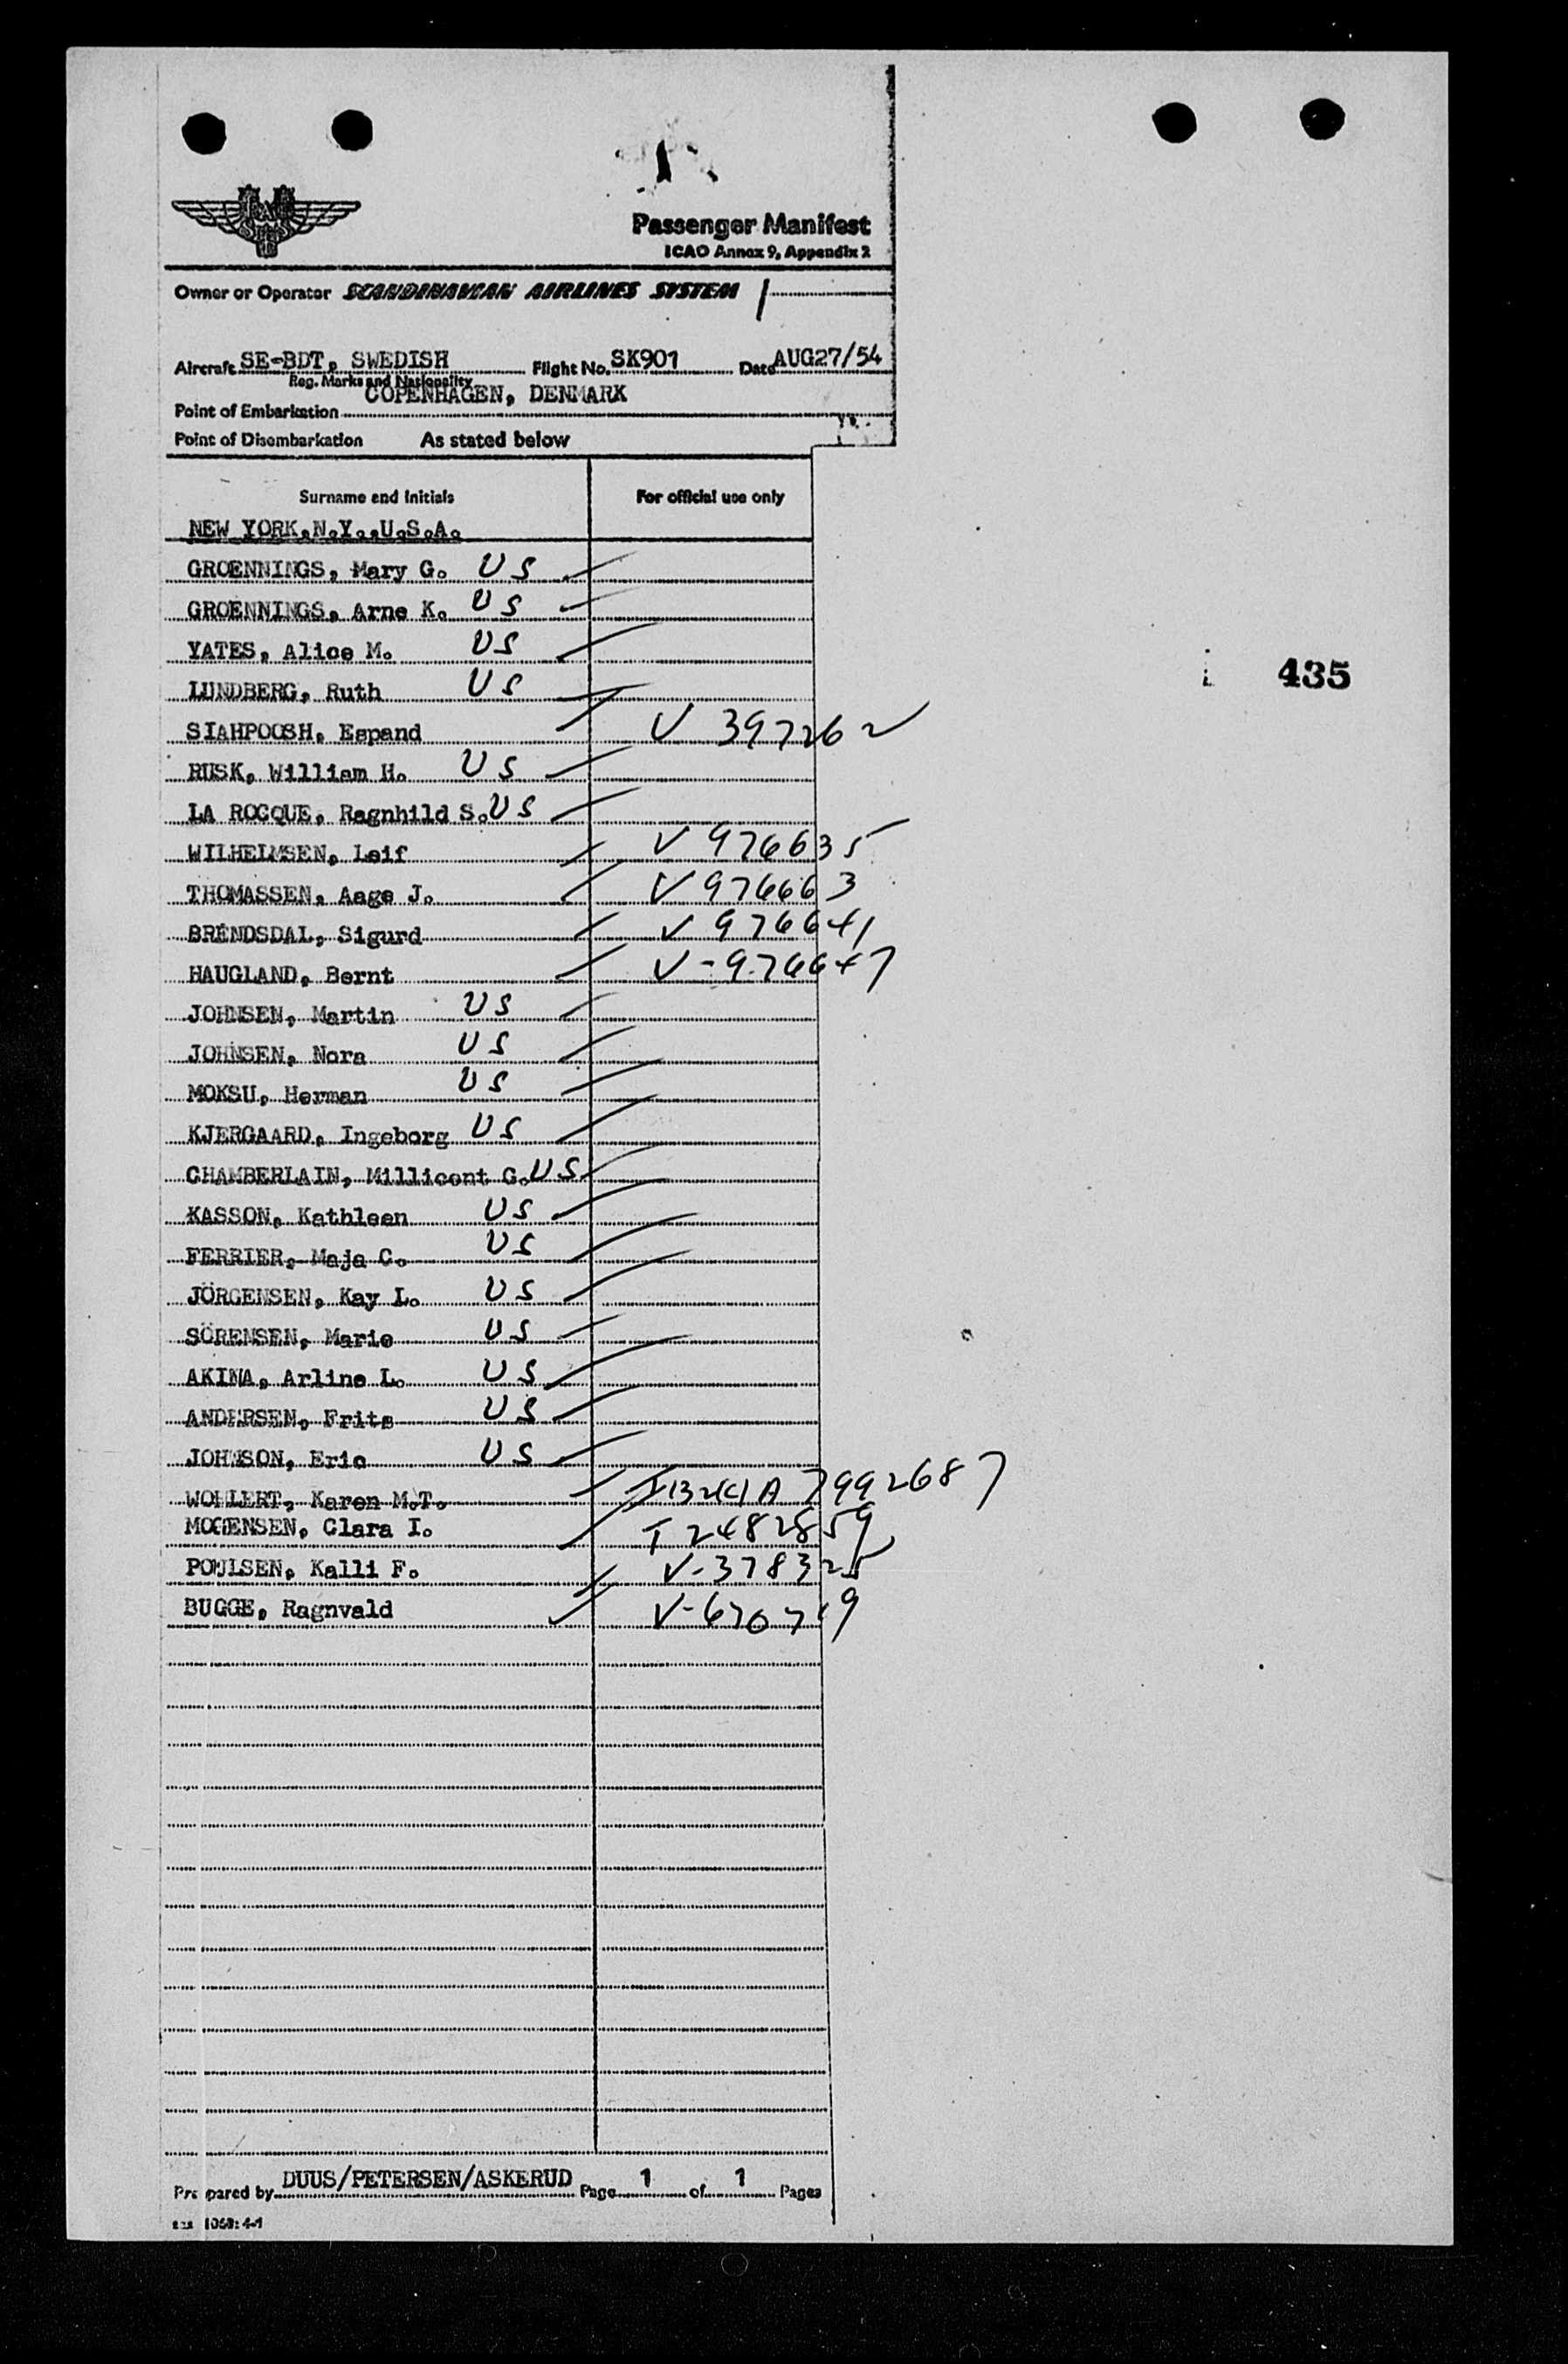 Passenger Manifest
ICAO Annex 9, Appendix 2
Owner or Operator SCANDINAVIAN AIRLINES SYSTEM
Aircraft SE-BDT, SWEDISH Flight No. SK901 Date AUG27/54
Reg. Marks and Nationality
COPENHAGEN, DENMARK
Point of Embarkation
Point of Disembarkation As stated below
Surname and Initials For official use only
NEW YORK,N.Y.,U.S.A.
GROENNINGS, Mary G. US
GROENNINGS, Arne K. US
YATES, Alice M. US
LUNDBERG, Ruth US
435
SIAHPOOSH, Espand V 397262
RUSK, William H. US
LA ROCQUE, Ragnhild S. US
WILHELMSEN, Leif V 976635
THOMASSEN, Aage J. V 976663
BRENDSDAL, Sigurd V 976641
HAUGLAND, Bernt V-976647
JOHNSEN, Martin US
JOHNSEN, Nora US
MOKSU, Herman US
KJERGAARD, Ingeborg US
CHAMBERLAIN, Millicent G. US
KASSON, Kathleen US
FERRIER, Maja C. US
JÖRGENSEN, Kay L. US
SÖRENSEN, Marie US
AKINA, Arline L. US
ANDERSEN, Frits US
JOHNSON, Eric US
WOHLERT, Karen M.T. A 7992687
MOGENSEN, Clara I. T 2482859
POULSEN, Kalli F. V-378325
BUGGE, Ragnvald V-670719
Prepared by DUUS/PETERSEN/ASKERUD Page 1 of 1 Pages